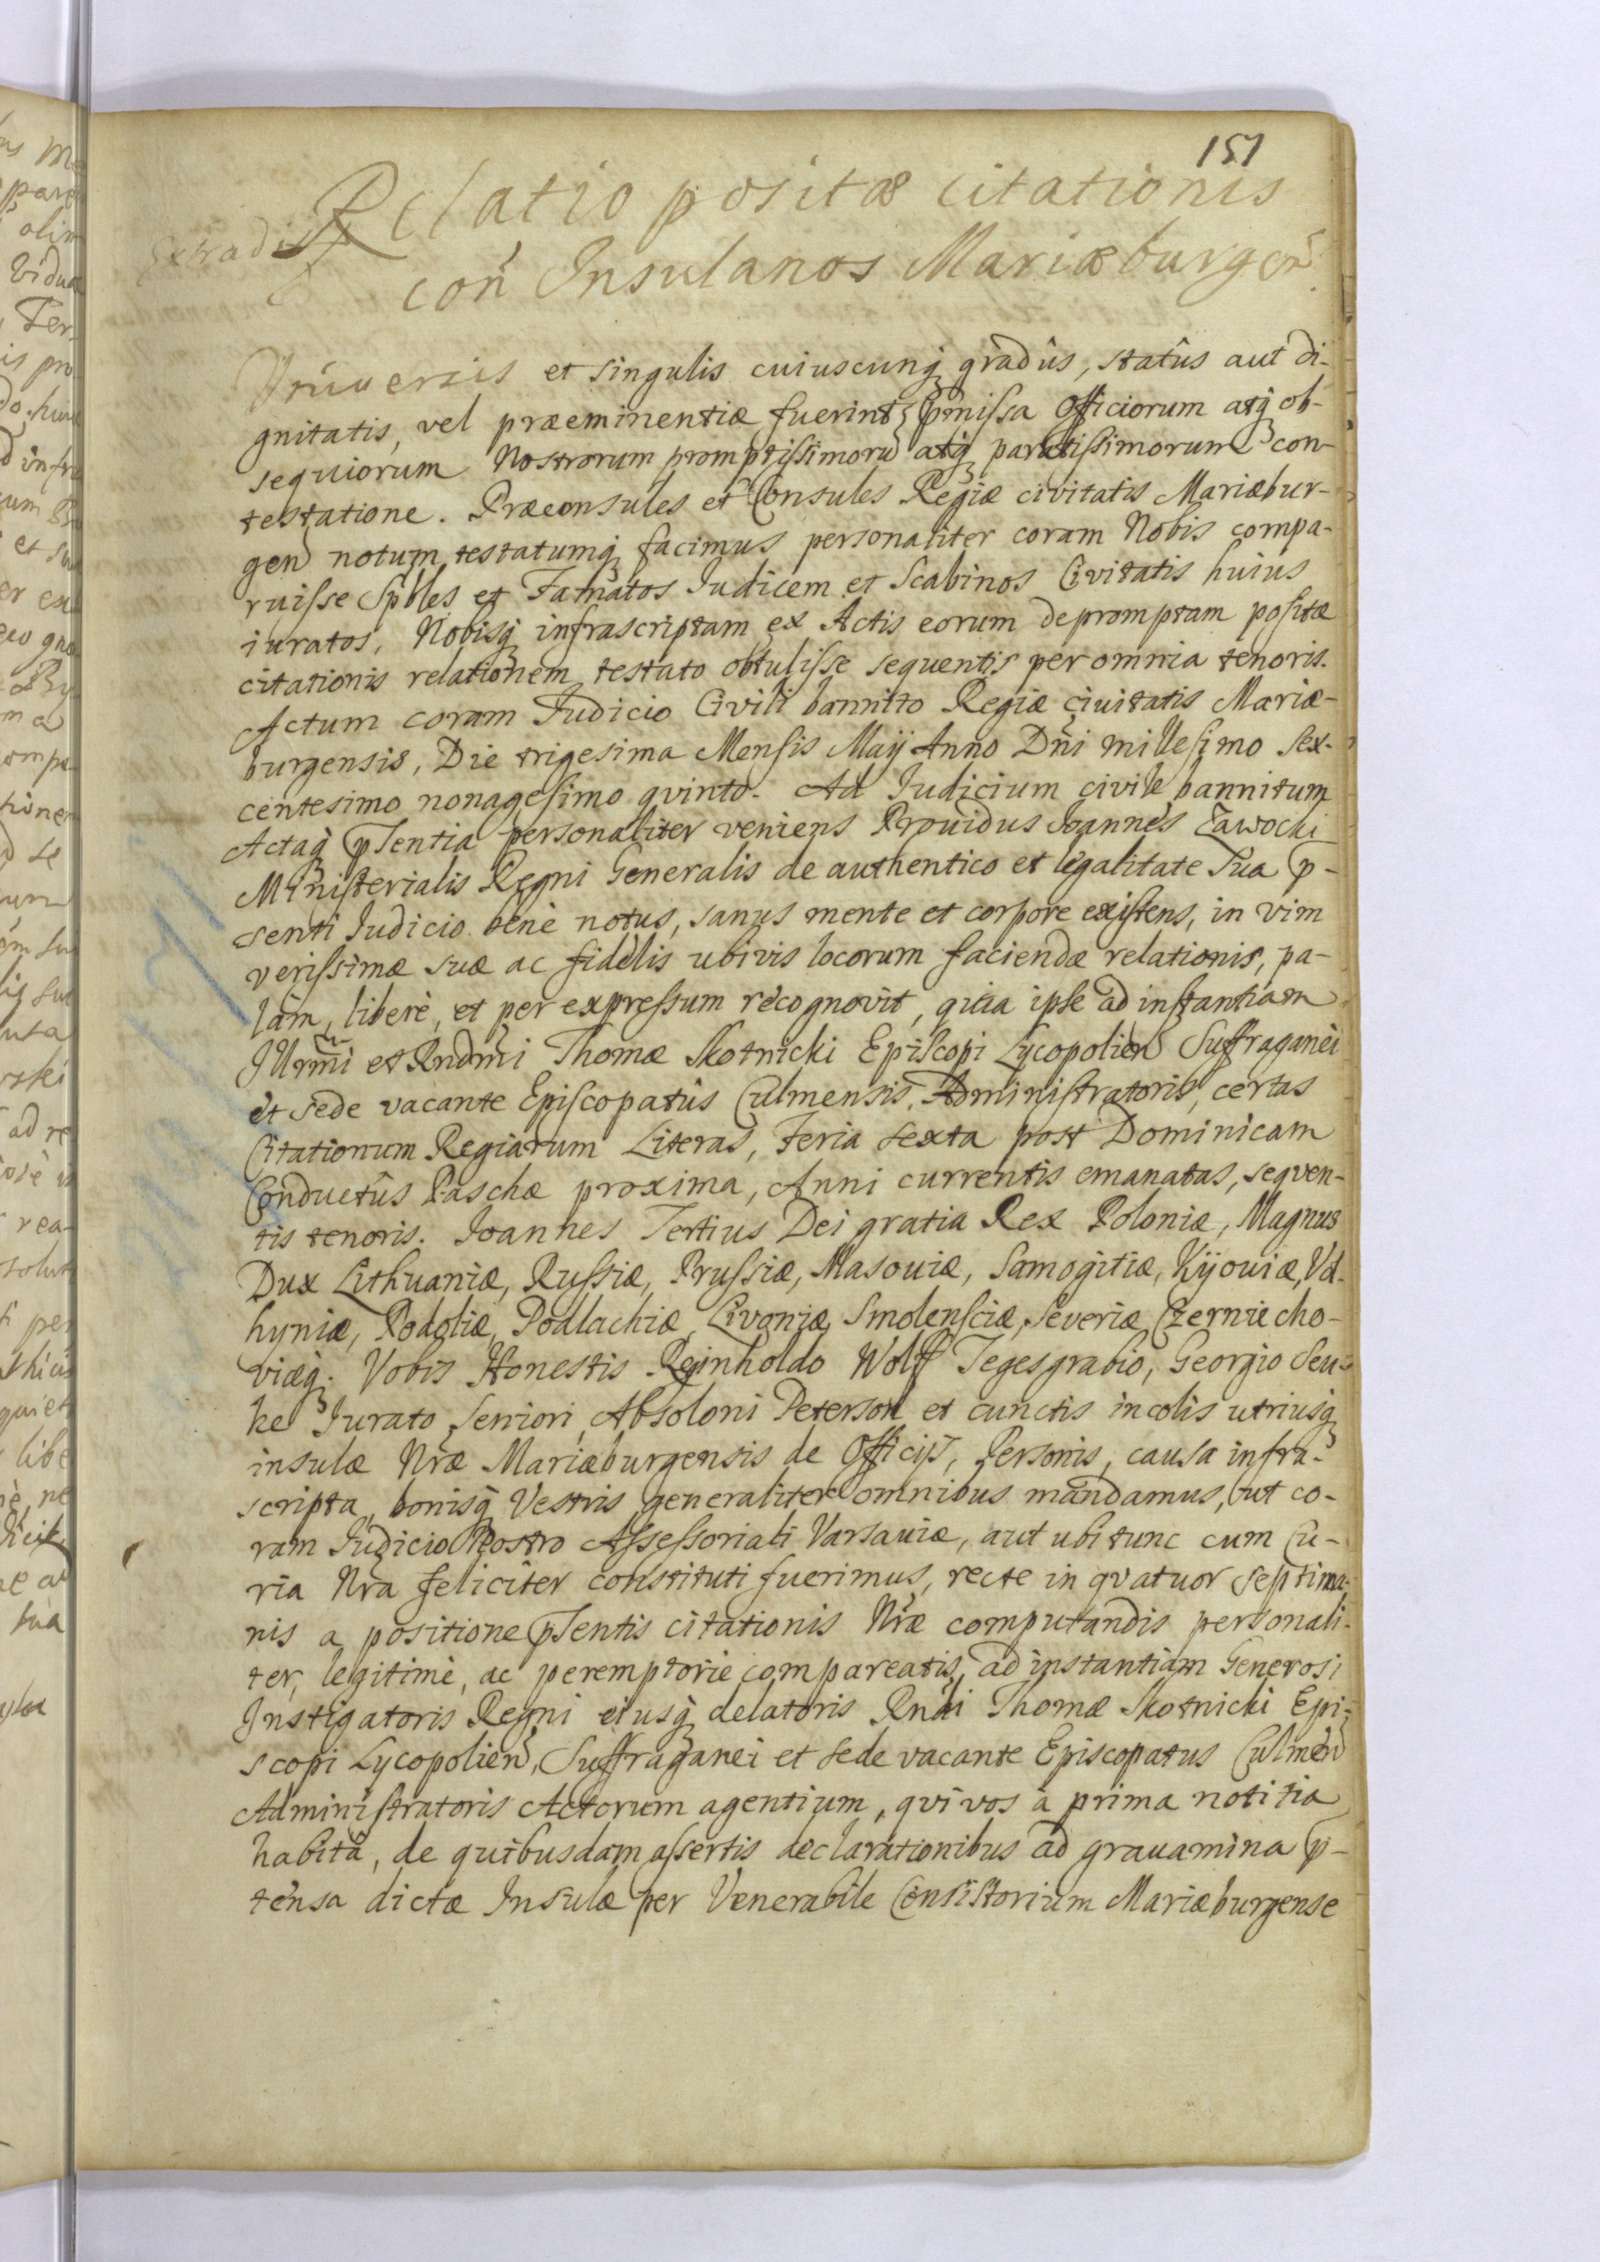 151
Relatio positæ citationis
Extradit
con̄ Insulanos Mariæburgen̄.
Universis et singulis cuiuscunq gradûs, statûs aut di-
gnitatis, vel præeminentiæ fuerint, p̄missa Officiorum atq ob-
sequiorum Nostrorum promptissimorū atq paratissimorum con-
testatione. Præconsules et Consules Regiæ civitatis Mariæbur-
gen notum testatumq facimus personaliter coram Nobis compa-
ruisse Sp̄bles et Famatos Iudicem et Scabinos Civitatis huius
iuratos, Nobisq infrascriptam ex Actis eorum depromptam positæ
citationis relationem testato obtulisse sequentis per omnia tenoris.
Actum coram Iudicio Civili bannito Regiæ civitatis Mariæ-
burgensis, Die trigesima Mensis Maij Anno Dn̄i millesimo sex-
centesimo nonagesimo qvinto. Ad Iudicium civile bannitum
Actaq p̄sentia personaliter veniens Providus Joannes Zawocki
Ministerialis Regni Generalis de authentico et legalitate sua p-
senti Iudicio benè notus, sanus mente et corpore existens, in vim
verissimæ suæ ac fidelis ubivis locorum faciendæ relationis, pa-
làm, liberè, et per expressum recognovit, quia ipse ad instantiam
Illrm̄i et Rndm̄i Thomæ Skotnicki Episcopi Lycopolien Suffraganei
et sede vacante Episcopatûs Culmensis Administratoris, certas
Citationum Regiarum Literas, Feria sexta post Dominicam
Conductûs Paschæ proxima, Anni currentis emanatas, seqven-
tis tenoris. Joannes Tertius Dei gratia Rex Poloniæ, Magnus
Dux Lithuaniæ, Russiæ, Prussiæ, Masoviæ, Samogitiæ, Kijoviæ, Vol-
hyniæ, Podoliæ, Podlachiæ, Livoniæ, Smolensciæ, Severiæ Czerniecho-
viæq. Vobis Honestis Reinholdo Wolff Tegesgrabio, Georgio Seu-
ke Jurato Seniori, Absoloni Peterson et cunctis incolis utriusq
insulæ Nr̄æ Mariæburgensis de Officijs, Personis, causa infra-
scripta, bonisq Vestris generaliter omnibus mandamus, ut co-
ram Iudicio Nostro Assessoriali Varsaviæ, aut ubi tunc cum Cu-
ria Nr̄a feliciter constituti fuerimus, recte in qvatuor septima-
nis a positione p̄sentis citationis Nr̄æ computandis personali-
ter, legitimè, ac peremptorie compareatis, ad instantiam Generosi
Instigatoris Regni eiusq delatoris Rndi Thomæ Skotnicki Epi-
scopi Lycopolien, Suffraganei et sede vacante Episcopatus Culmen
Administratoris Actorum agentium, qvi vos à prima notitia
habita, de quibusdam assertis declarationibus ad gravamina p-
tensa dictæ Insulæ per Venerabile Consistorium Mariæburgense